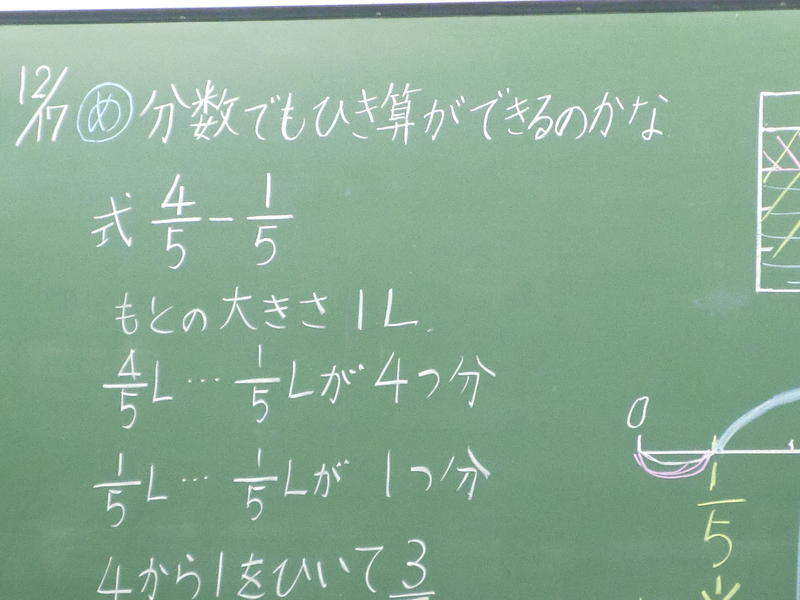 12/17 め 分数でもひき算ができるのかな
式 4/5 - 1/5
もとの大きさ 1L
4/5 L … 1/5 Lが 4つ分
1/5 L … 1/5 Lが 1つ分
4から1をひいて 3
0
1/5